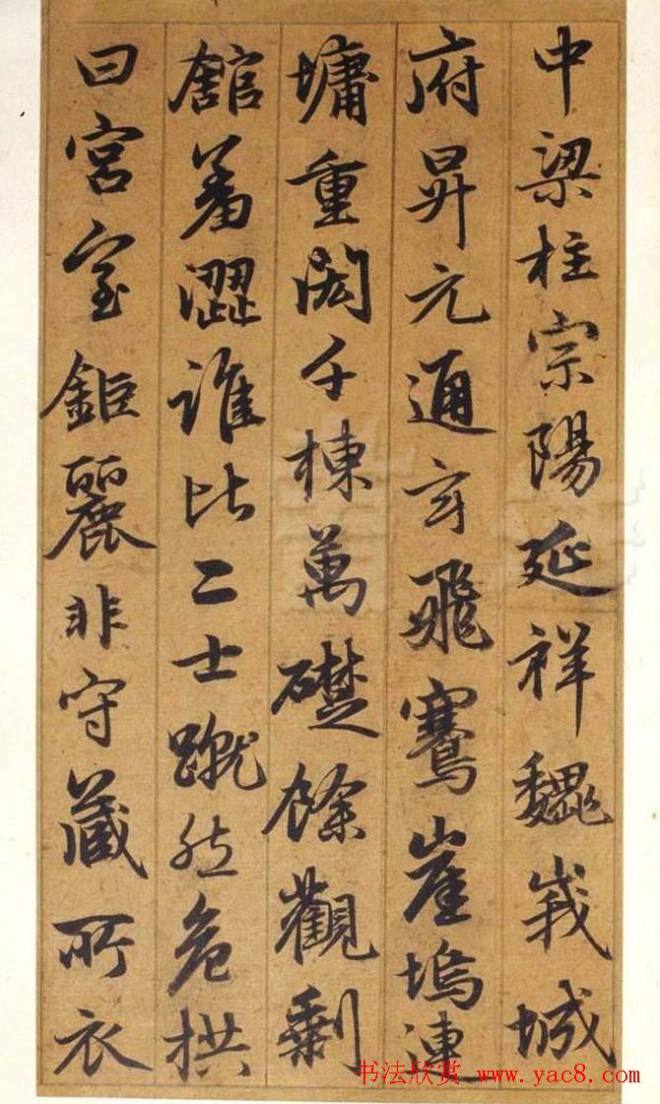 中梁柱宗陽延祥魏峩城
府昇元通玄飛騫崖塢連
墉重閎千棟萬礎餘觀剩
舘羞澀誰比二士蹴然危拱
曰宮室鉅麗非守藏所衣
书法欣赏 www.yac8.com